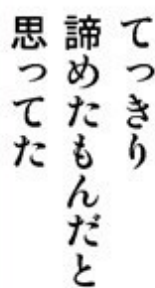 てっきり
諦めたもんだと
思ってた